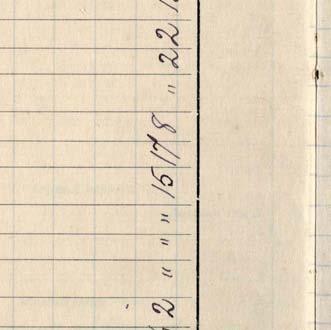 2 " " " 15 17 8 " 22